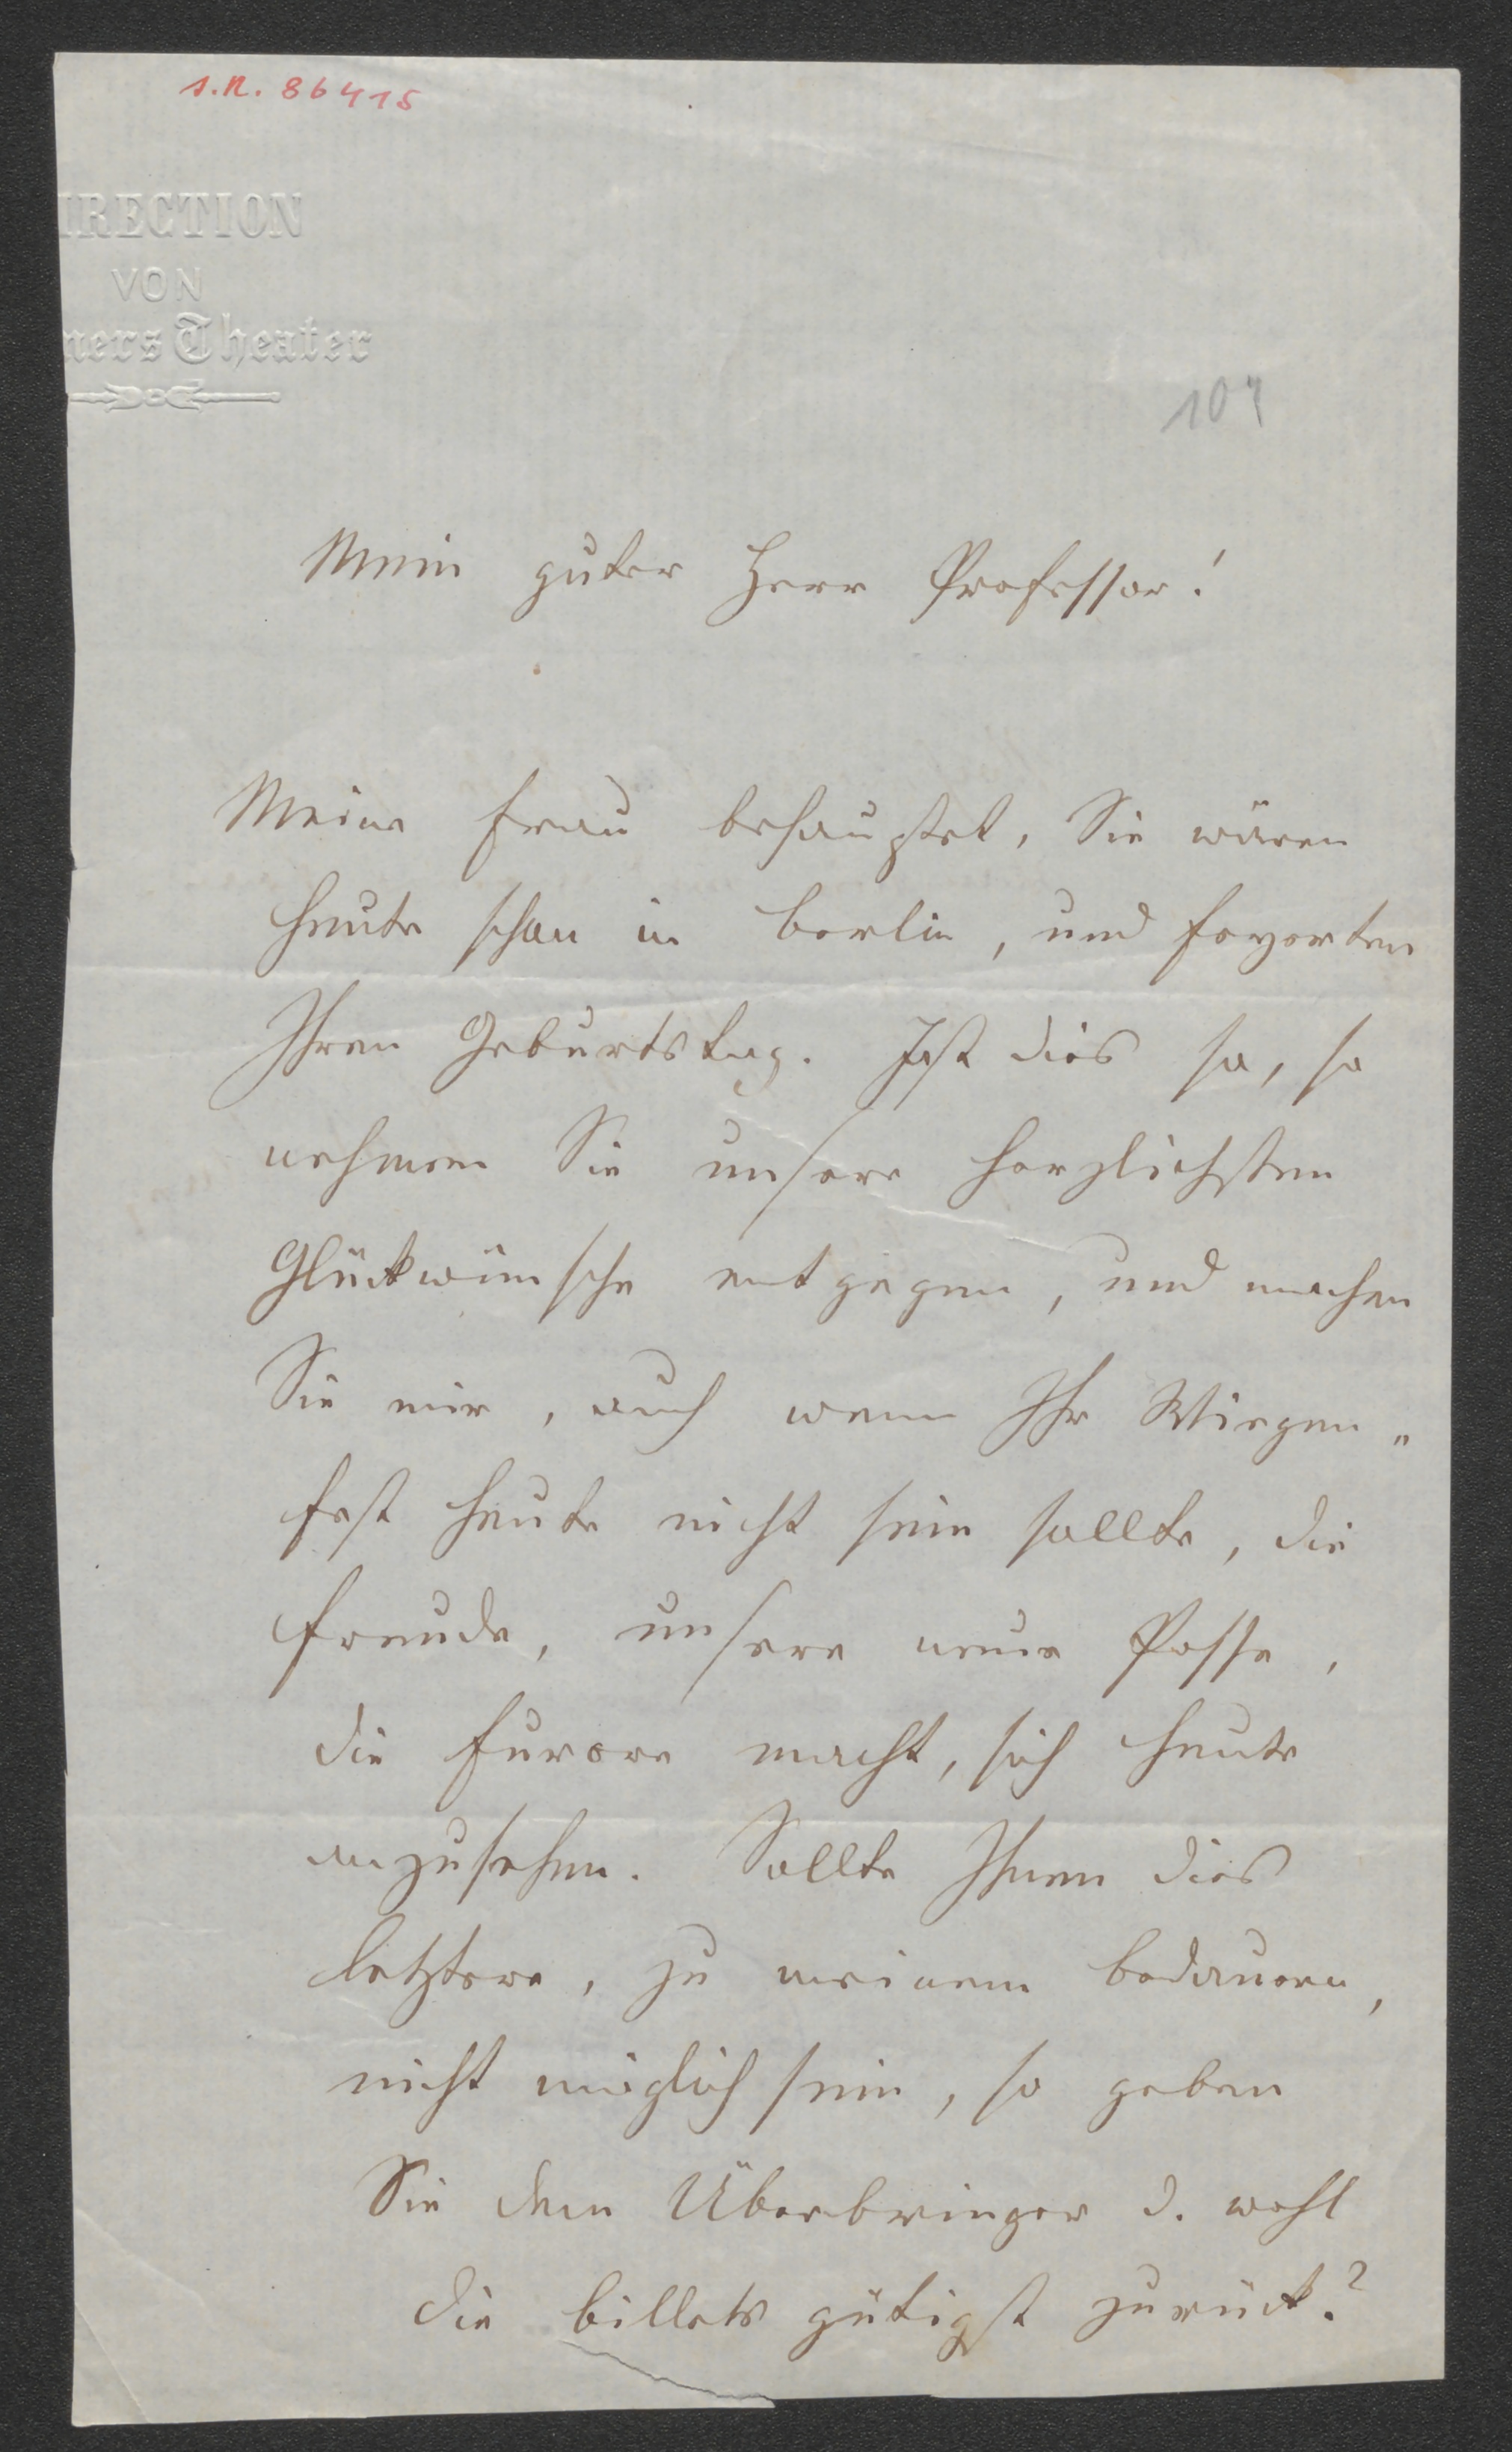 s.n. 86415
IRECTION
VON
ners Theater
107
Mein guter Herr Professor!
Meine Frau behauptet, Sie wären
heute schon in Berlin, und feyerten
Ihren Geburtstag. Ist dies so, so
nehmen Sie unsere herzlichsten
Glückwünsche entgegen, und machen
Sie mir, auch wenn Ihr Wiegen„
fest heute nicht sein sollte, die
Freude, unsere neue Posse,
die Furore macht, sich heute
anzusehen. Sollte Ihnen dies
letztere, zu meinem Bedauern,
nicht möglich sein, so geben
Sie dem Überbringer d. wohl
die Billets gütigst zurück?